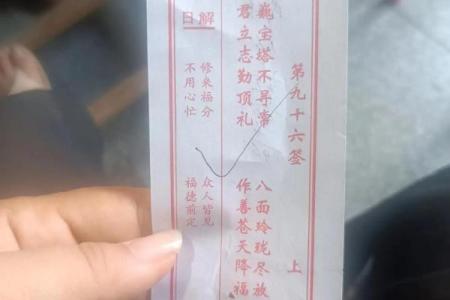 第九十六签 上
巍宝塔不寻常 八面玲珑尽放
君立志勤顶礼 作善苍天降福
解曰
修来福分 众人皆见
不用心忙 福德前定